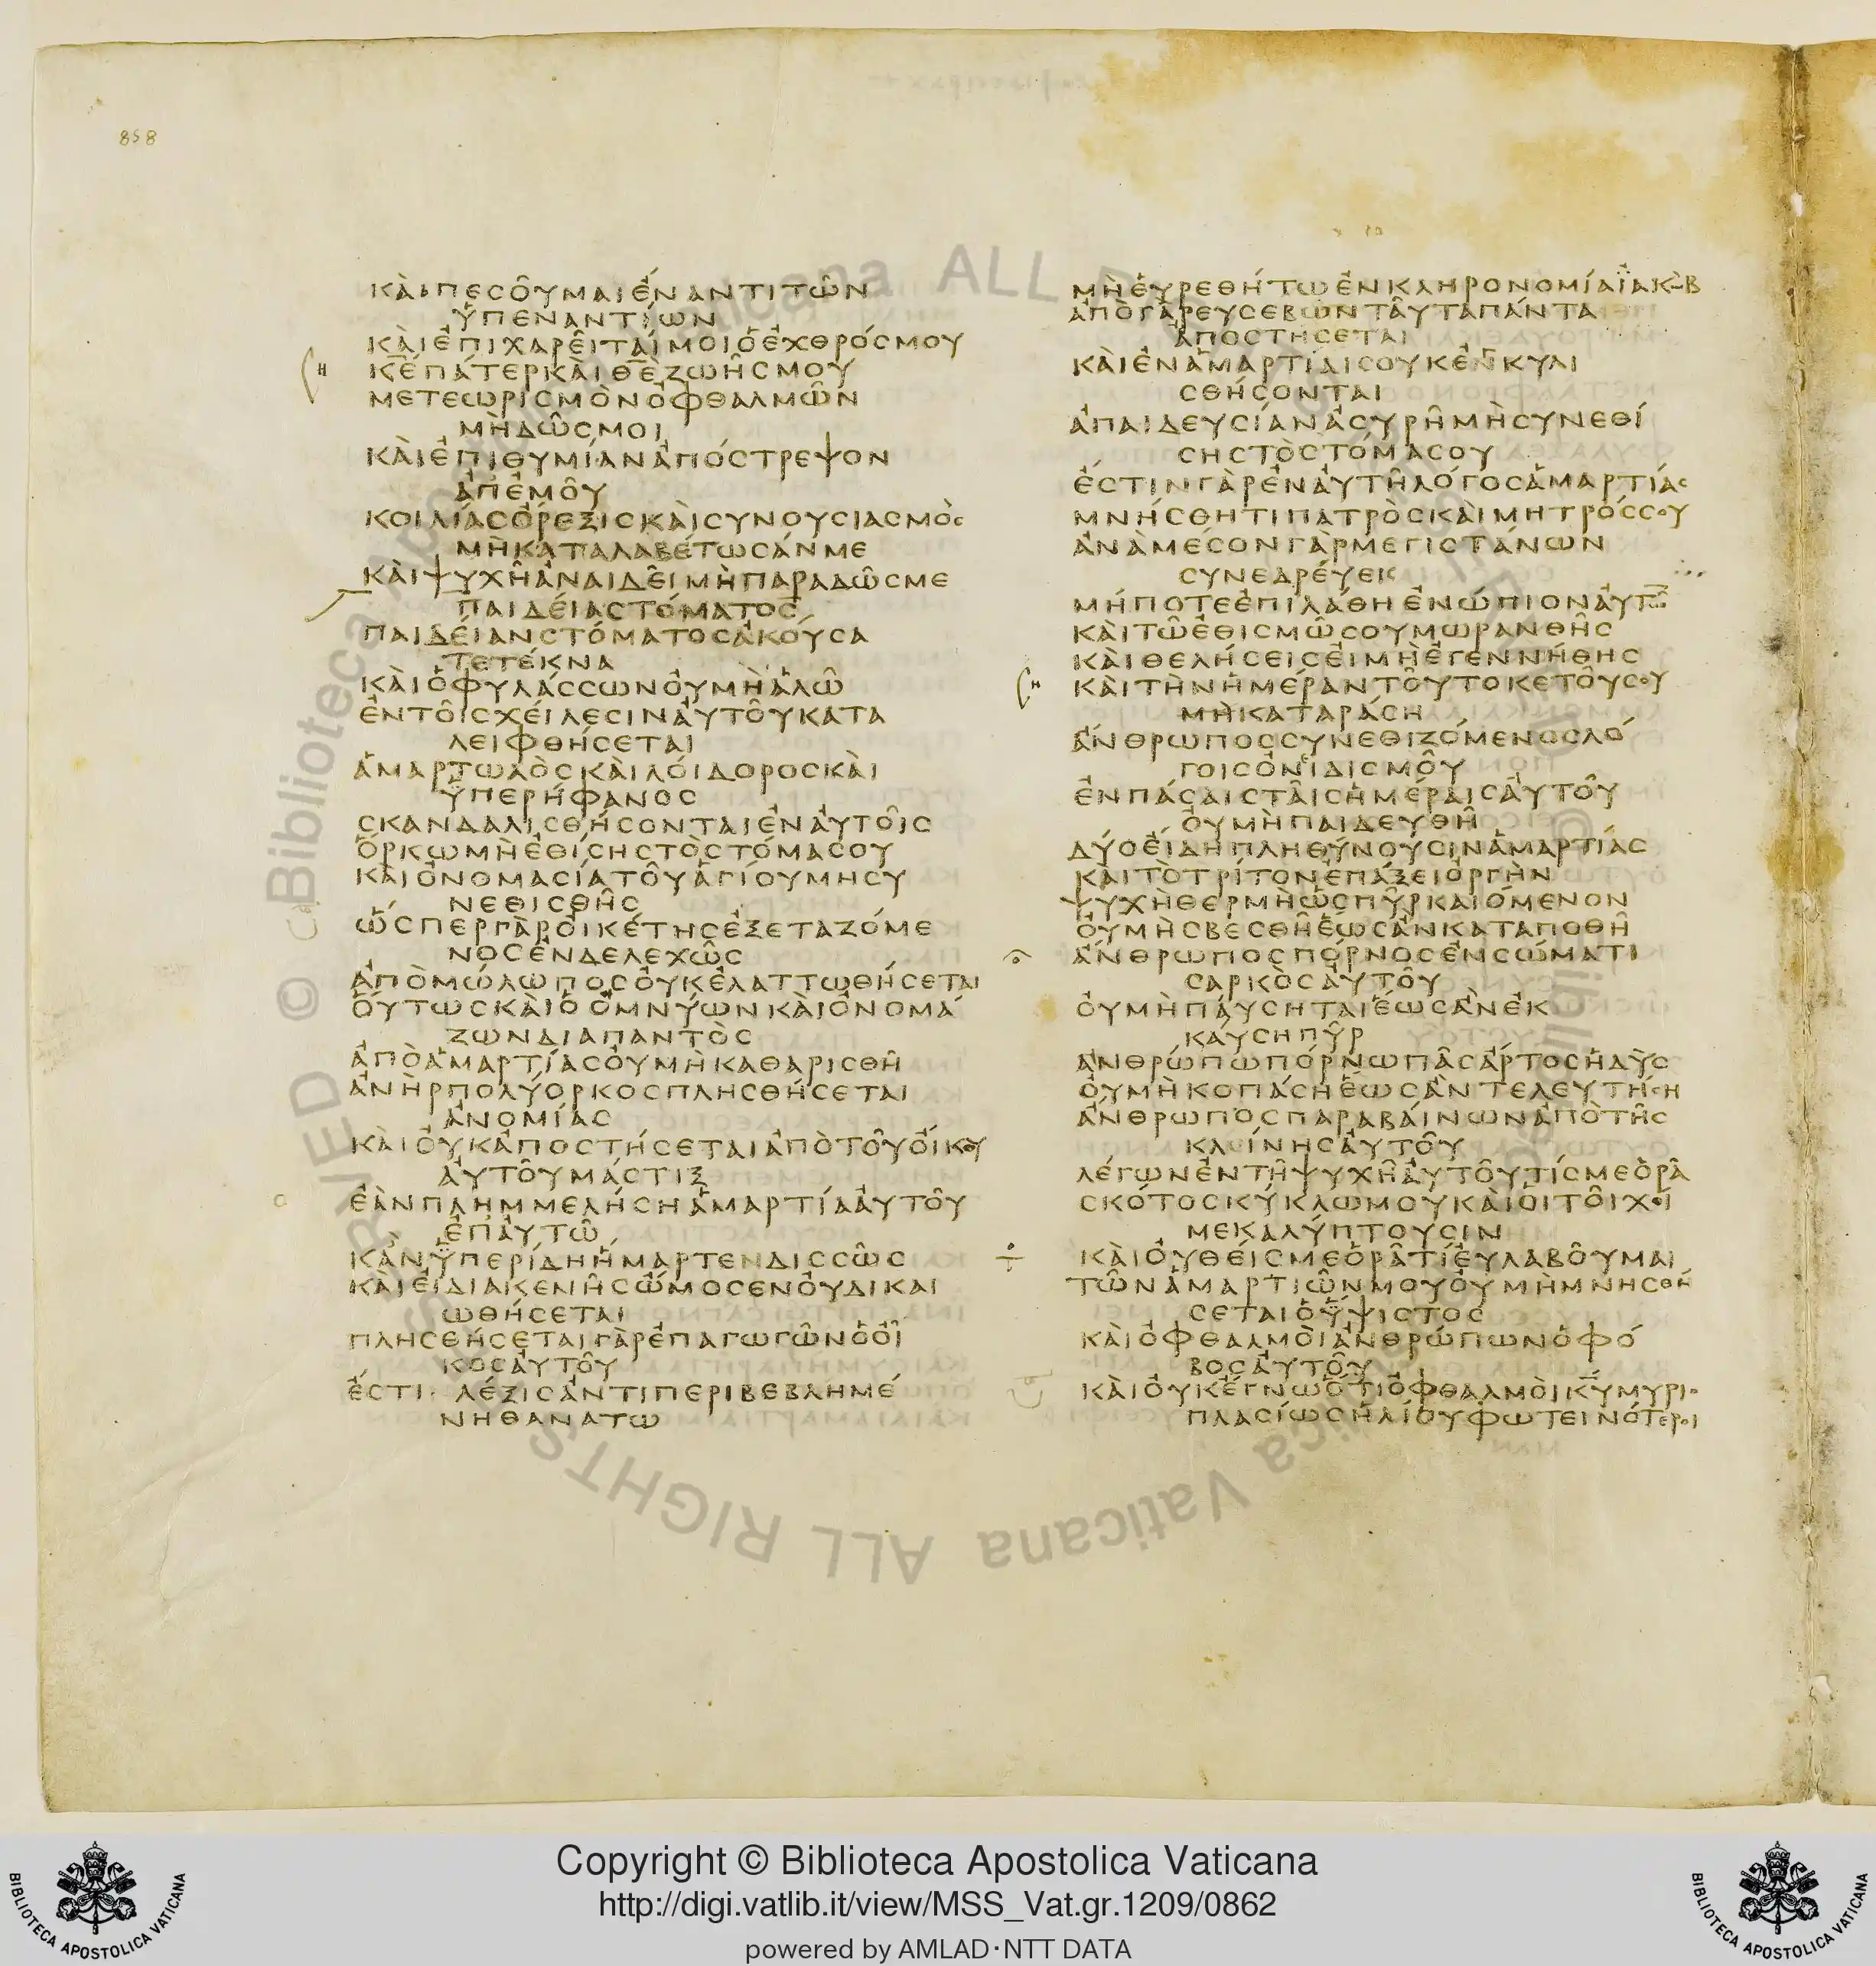 858
ΚΑΙΠΕϹΟΥΜΑΙΕΝΑΝΤΙΤΩΝ
ΥΠΕΝΑΝΤΙΩΝ
ΚΑΙΕΠΙΧΑΡΕΙΤΑΙΜΟΙΟΕΧΘΡΟϹΜΟΥ
Κ̅Ε̅ΠΑΤΕΡΚΑΙΘ̅Ε̅ΖΩΗϹΜΟΥ
ΜΕΤΕΩΡΙϹΜΟΝΟΦΘΑΛΜΩΝ
ΜΗΔΩϹΜΟΙ
ΚΑΙΕΠΙΘΥΜΙΑΝΑΠΟϹΤΡΕΨΟΝ
ΑΠΕΜΟΥ
ΚΟΙΛΙΑϹΟΡΕΞΙϹΚΑΙϹΥΝΟΥϹΙΑϹΜΟϹ
ΜΗΚΑΤΑΛΑΒΕΤΩϹΑΝΜΕ
ΚΑΙΨΥΧΗΑΝΑΙΔΕΙΜΗΠΑΡΑΔΩϹΜΕ
ΠΑΙΔΕΙΑϹΤΟΜΑΤΟϹ
ΠΑΙΔΕΙΑΝϹΤΟΜΑΤΟϹΑΚΟΥϹΑ
ΤΕΤΕΚΝΑ
ΚΑΙΟΦΥΛΑϹϹΩΝΟΥΜΗΑΛΩ
ΕΝΤΟΙϹΧΕΙΛΕϹΙΝΑΥΤΟΥΚΑΤΑ
ΛΕΙΦΘΗϹΕΤΑΙ
ΑΜΑΡΤΩΛΟϹΚΑΙΛΟΙΔΟΡΟϹΚΑΙ
ΥΠΕΡΗΦΑΝΟϹ
ϹΚΑΝΔΑΛΙϹΘΗϹΟΝΤΑΙΕΝΑΥΤΟΙϹ
ΟΡΚΩΜΗΕΘΙϹΗϹΤΟϹΤΟΜΑϹΟΥ
ΚΑΙΟΝΟΜΑϹΙΑΤΟΥΑΓΙΟΥΜΗϹΥ
ΝΕΘΙϹΘΗϹ
ΩϹΠΕΡΓΑΡΟΙΚΕΤΗϹΕΞΕΤΑΖΟΜΕ
ΝΟϹΕΝΔΕΛΕΧΩϹ
ΑΠΟΜΩΛΩΠΟϹΟΥΚΕΛΑΤΤΩΘΗϹΕΤΑΙ
ΟΥΤΩϹΚΑΙΟΟΜΝΥΩΝΚΑΙΟΝΟΜΑ
ΖΩΝΔΙΑΠΑΝΤΟϹ
ΑΠΟΑΜΑΡΤΙΑϹΟΥΜΗΚΑΘΑΡΙϹΘΗ
ΑΝΗΡΠΟΛΥΟΡΚΟϹΠΛΗϹΘΗϹΕΤΑΙ
ΑΝΟΜΙΑϹ
ΚΑΙΟΥΚΑΠΟϹΤΗϹΕΤΑΙΑΠΟΤΟΥΟΙΚΟΥ
ΑΥΤΟΥΜΑϹΤΙΞ
ΕΑΝΠΛΗΜΜΕΛΗϹΗΑΜΑΡΤΙΑΑΥΤΟΥ
ΕΠΑΥΤΩ
ΚΑΝΥΠΕΡΙΔΗΗΜΑΡΤΕΝΔΙϹϹΩϹ
ΚΑΙΕΙΔΙΑΚΕΝΗϹΩΜΟϹΕΝΟΥΔΙΚΑΙ
ΩΘΗϹΕΤΑΙ
ΠΛΗϹΘΗϹΕΤΑΙΓΑΡΕΠΑΓΩΓΩΝΟΟΙ
ΚΟϹΑΥΤΟΥ
ΕϹΤΙ ΛΕΞΙϹΑΝΤΙΠΕΡΙΒΕΒΛΗΜΕ
ΝΗΘΑΝΑΤΩ
ΜΗΕΥΡΕΘΗΤΩΕΝΚΛΗΡΟΝΟΜΙΑΪΑΚΩΒ
ΑΠΟΓΑΡΕΥϹΕΒΩΝΤΑΥΤΑΠΑΝΤΑ
ΑΠΟϹΤΗϹΕΤΑΙ
ΚΑΙΕΝΑΜΑΡΤΙΑΙϹΟΥΚΕΝΚΥΛΙ
ϹΘΗϹΟΝΤΑΙ
ΑΠΑΙΔΕΥϹΙΑΝΑϹΥΡΗΜΗϹΥΝΕΘΙ
ϹΗϹΤΟϹΤΟΜΑϹΟΥ
ΕϹΤΙΝΓΑΡΕΝΑΥΤΗΛΟΓΟϹΑΜΑΡΤΙΑϹ
ΜΝΗϹΘΗΤΙΠΑΤΡΟϹΚΑΙΜΗΤΡΟϹϹΟΥ
ΑΝΑΜΕϹΟΝΓΑΡΜΕΓΙϹΤΑΝΩΝ
ϹΥΝΕΔΡΕΥΕΙϹ
ΜΗΠΟΤΕΕΠΙΛΑΘΗΕΝΩΠΙΟΝΑΥΤΩ̅
ΚΑΙΤΩΕΘΙϹΜΩϹΟΥΜΩΡΑΝΘΗϹ
ΚΑΙΘΕΛΗϹΕΙϹΕΙΜΗΕΓΕΝΝΗΘΗϹ
ΚΑΙΤΗΝΗΜΕΡΑΝΤΟΥΤΟΚΕΤΟΥϹΟΥ
ΜΗΚΑΤΑΡΑϹΗ
ΑΝΘΡΩΠΟϹϹΥΝΕΘΙΖΟΜΕΝΟϹΛΟ
ΓΟΙϹΟΝΙΔΙϹΜΟΥ
ΕΝΠΑϹΑΙϹΤΑΙϹΗΜΕΡΑΙϹΑΥΤΟΥ
ΟΥΜΗΠΑΙΔΕΥΘΗ
ΔΥΟΕΙΔΗΠΛΗΘΥΝΟΥϹΙΝΑΜΑΡΤΙΑϹ
ΚΑΙΤΟΤΡΙΤΟΝΕΠΑΞΕΙΟΡΓΗΝ
ΨΥΧΗΘΕΡΜΗΩϹΠΥΡΚΑΙΟΜΕΝΟΝ
ΟΥΜΗϹΒΕϹΘΗΕΩϹΑΝΚΑΤΑΠΟΘΗ
ΑΝΘΡΩΠΟϹΠΟΡΝΟϹΕΝϹΩΜΑΤΙ
ϹΑΡΚΟϹΑΥΤΟΥ
ΟΥΜΗΠΑΥϹΗΤΑΙΕΩϹΑΝΕΚ
ΚΑΥϹΗΠΥΡ
ΑΝΘΡΩΠΩΠΟΡΝΩΠΑϹΑΡΤΟϹΗΔΥϹ
ΟΥΜΗΚΟΠΑϹΗΕΩϹΑΝΤΕΛΕΥΤΗϹΗ
ΑΝΘΡΩΠΟϹΠΑΡΑΒΑΙΝΩΝΑΠΟΤΗϹ
ΚΛΙΝΗϹΑΥΤΟΥ
ΛΕΓΩΝΕΝΤΗΨΥΧΗΑΥΤΟΥΤΙϹΜΕΟΡΑ
ϹΚΟΤΟϹΚΥΚΛΩΜΟΥΚΑΙΟΙΤΟΙΧΟΙ
ΜΕΚΑΛΥΠΤΟΥϹΙΝ
ΚΑΙΟΥΘΕΙϹΜΕΟΡΑΤΙΕΥΛΑΒΟΥΜΑΙ
ΤΩΝΑΜΑΡΤΙΩΝΜΟΥΟΥΜΗΜΝΗϹΘΗ
ϹΕΤΑΙΟΫΨΙϹΤΟϹ
ΚΑΙΟΦΘΑΛΜΟΙΑΝΘΡΩΠΩΝΟΦΟ
ΒΟϹΑΥΤΟΥ
ΚΑΙΟΥΚΕΓΝΩΟΤΙΟΦΘΑΛΜΟΙΚ̅Υ̅ΜΥΡΙΟ
ΠΛΑϹΙΩϹΗΛΙΟΥΦΩΤΕΙΝΟΤΕΡΟΙ
© Biblioteca Apostolica Vaticana ALL RIGHTS RESERVED
Copyright © Biblioteca Apostolica Vaticana
http://digi.vatlib.it/view/MSS_Vat.gr.1209/0862
powered by AMLAD·NTT DATA
BIBLIOTECA APOSTOLICA VATICANA
BIBLIOTECA APOSTOLICA VATICANA